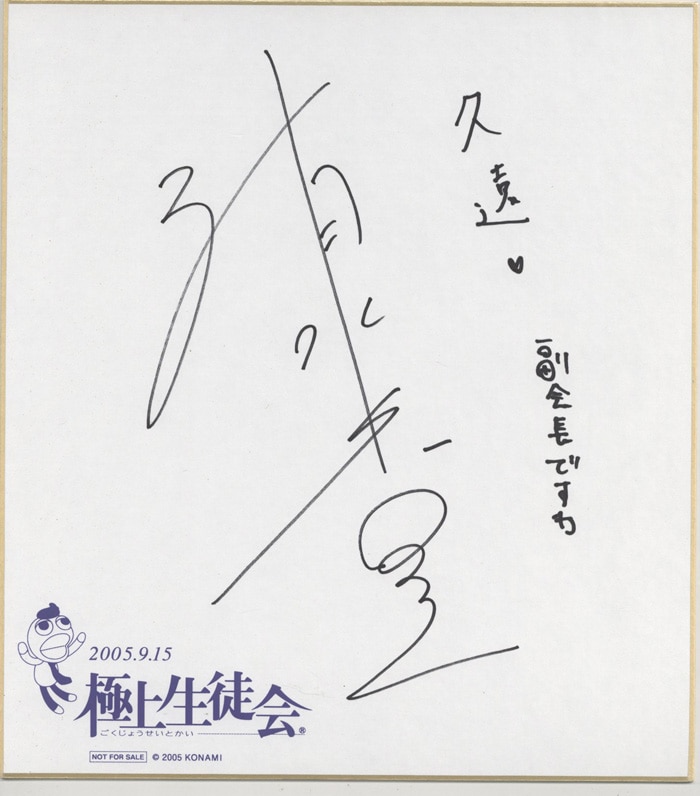 久遠♥
副会長ですわ
清水香里
2005.9.15
極上生徒会®
ごくじょうせいとかい
NOT FOR SALE © 2005 KONAMI